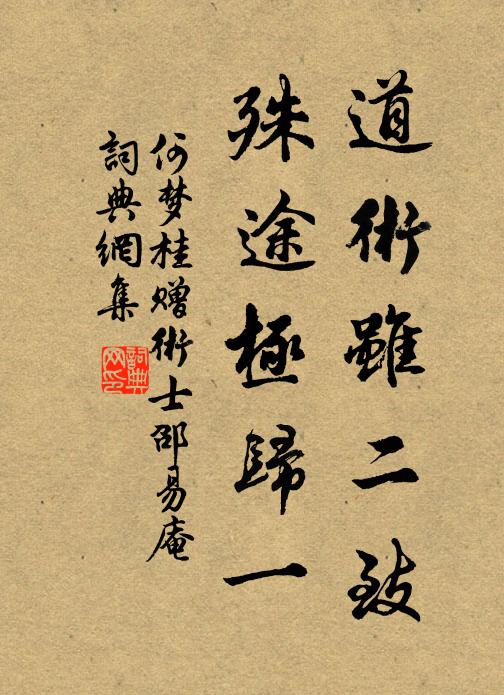 道術雖二致
殊途極歸一
何梦桂赠術士邵易庵
詞典網集
詞典网印